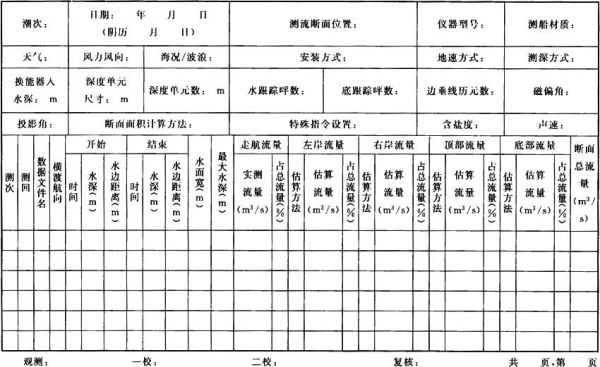 潮次： 日期： 年 月 日 测流断面位置： 仪器型号： 测船材质：
(阴历 月 日)
天气： 风力风向： 海况/波浪： 安装方式： 地速方式： 测深方式：
换能器入水深： m 深度单元尺寸： m 深度单元数： m 水跟踪呯数： 底跟踪呯数： 边垂线历元数： 磁偏角：
投影角： 断面面积计算方法： 特殊指令设置： 含盐度： 声速：
测次 测回 数据文件名 横渡航向 开始 结束 水面宽(m) 最大水深(m) 走航流量 左岸流量 右岸流量 顶部流量 底部流量 断面总流量(m³/s)
时间 水深(m) 水边距离(m) 时间 水深(m) 水边距离(m) 实测流量(m³/s) 占总流量(%) 估算方法 估算流量(m³/s) 占总流量(%) 估算方法 估算流量(m³/s) 占总流量(%) 估算方法 估算流量(m³/s) 占总流量(%) 估算方法 估算流量(m³/s) 占总流量(%)
观测： 一校： 二校： 复核： 共 页,第 页